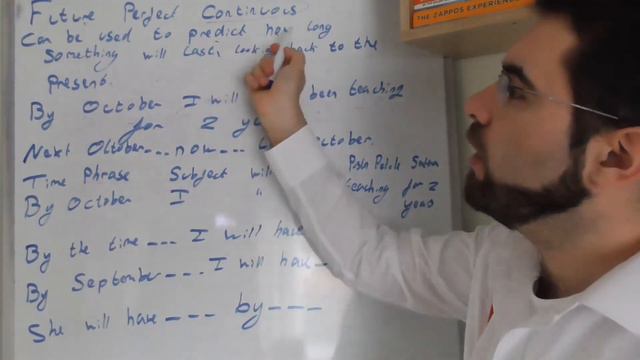 Future Perfect Continuous
Can be used to predict how long
something will last, looking back to the
present.
By October I will been teaching
for 2 ye
Next October...now... October.
Time Phrase Subject will
By October I " teaching for 2
years
By the time --- I will have
By September --- I will have --
She will have --- by ---
THE ZAPPOS EXPERIENCE